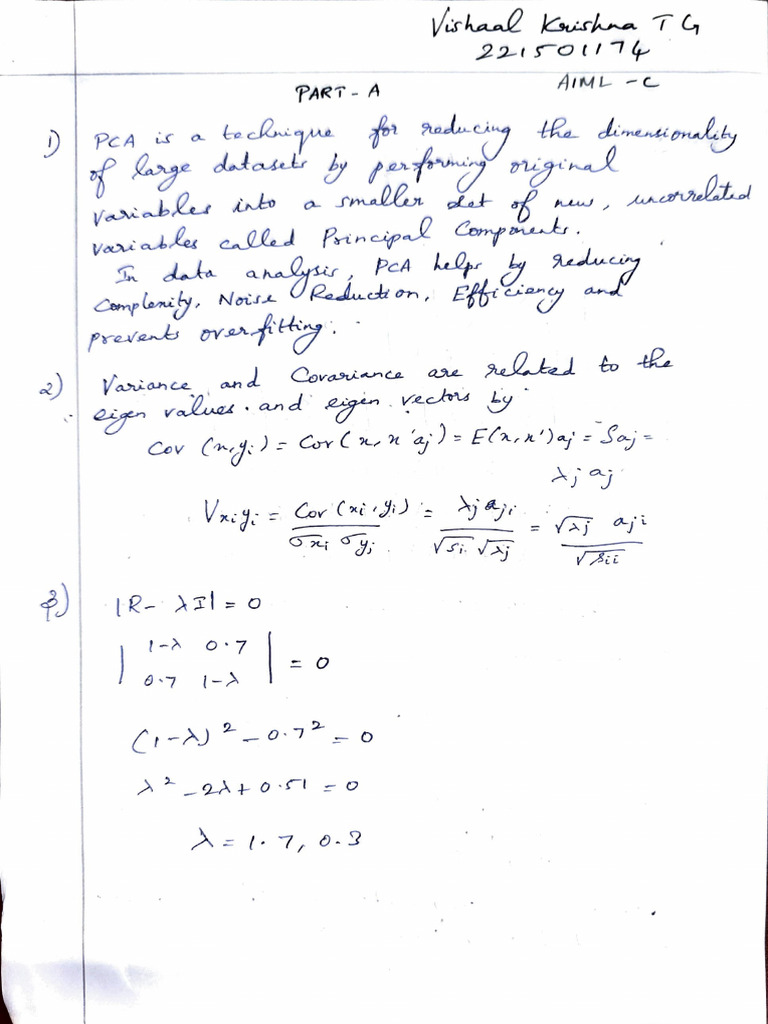 Vishaal Krishna T G
221501174
AIML - C
PART - A
1) PCA is a technique for reducing the dimensionality
of large datasets by performing original
variables into a smaller set of new, uncorrelated
variables called Principal Components.
In data analysis, PCA helps by reducing
Complexity, Noise Reduction, Efficiency and
prevents overfitting.
2) Variance and Covariance are related to the
eigen values. and eigen vectors by
Cov (x, yi) = Cov (x, x'aj) = E(x, x')aj = Saj =
λj aj
Vxiyi = Cov (xi, yi) / σxi σyj = λj aji / √si √λj = √λj aji / √sii
3) |R - λI| = 0
| 1-λ 0.7 |
| 0.7 1-λ | = 0
(1-λ)² - 0.7² = 0
λ² - 2λ + 0.51 = 0
λ = 1.7, 0.3